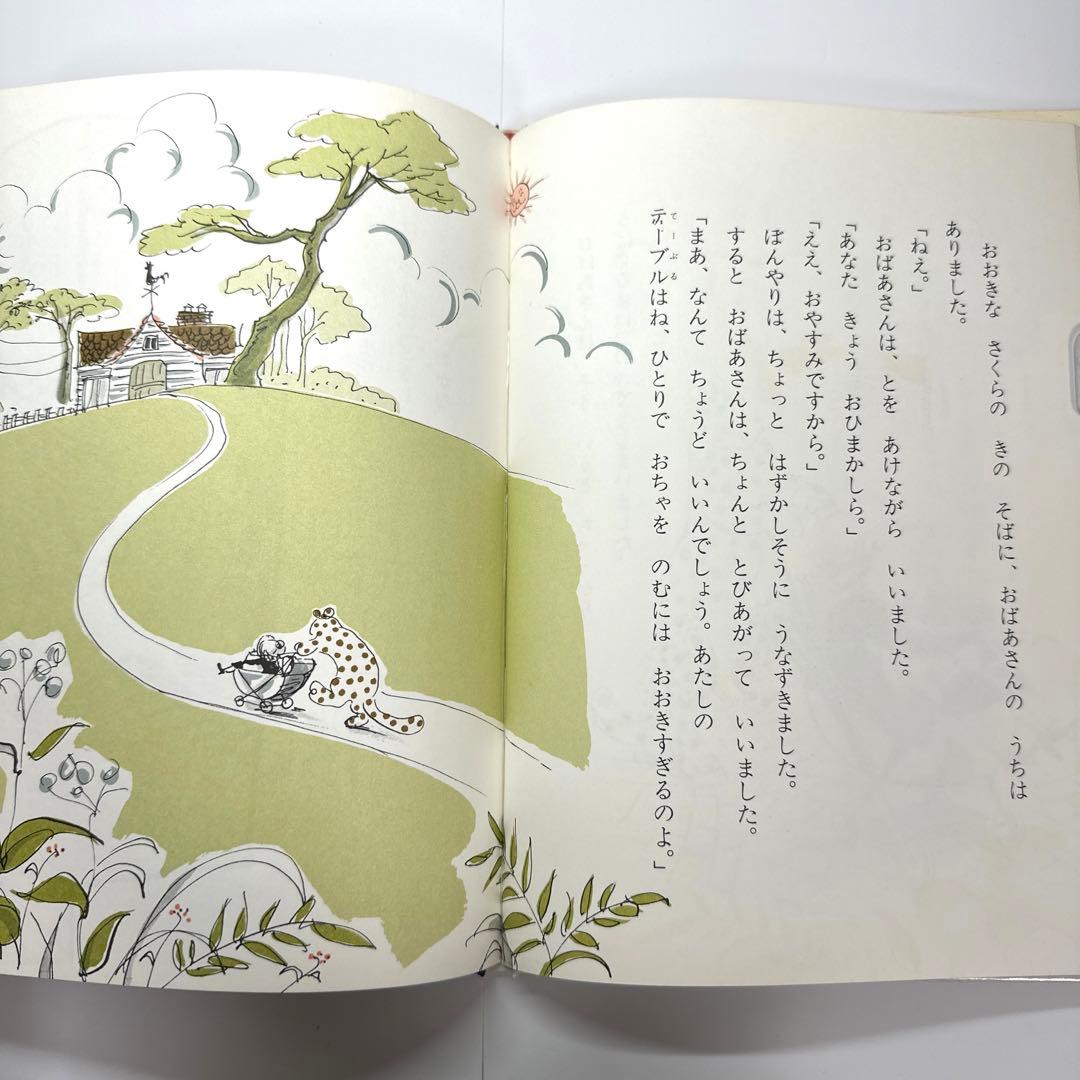 おおきな　さくらの　きの　そばに、おばあさんの　うちは
ありました。
「ねえ。」
おばあさんは、とを　あけながら　いいました。
「あなた　きょう　おひまかしら。」
「ええ、おやすみですから。」
ぼんやりは、ちょっと　はずかしそうに　うなずきました。
すると　おばあさんは、ちょんと　とびあがって　いいました。
「まあ、なんて　ちょうど　いいんでしょう。あたしの
テーブルはね、ひとりで　おちゃを　のむには　おおきすぎるのよ。」
てーぶる